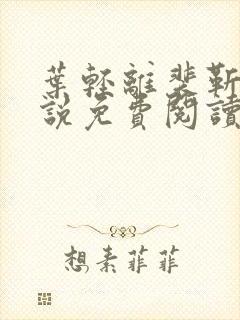 葉輕離裴靳
說免費閱讀
想素菲菲